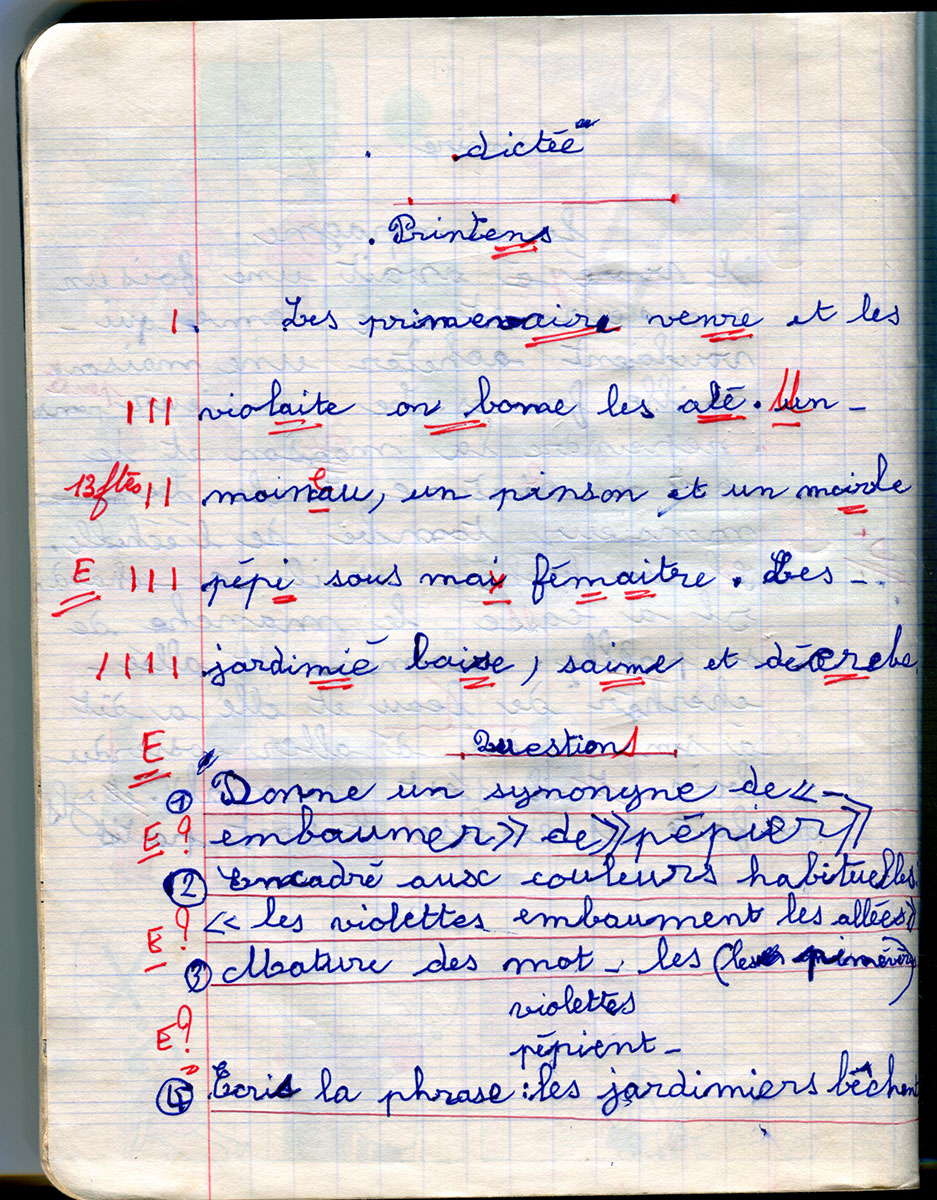 dictée
Printens
I. Les primevaire venre et les
III violaite on bome les alé. un -
13 ftes II moineau, un pinson et un mairle
E III pépi sous mai fémaitre. Les -
IIII jardimié baise, saime et décrebe
E Questions
① Donne un synonyne de « -
E? embaumer» de »pépier»
② Encadré aux couleurs habituelles
E? « les violettes embaument les allées»
③ Nature des mot - les (les pimévère)
violettes
E? pépient -
④ Ecris la phrase : les jardimiers bêchent